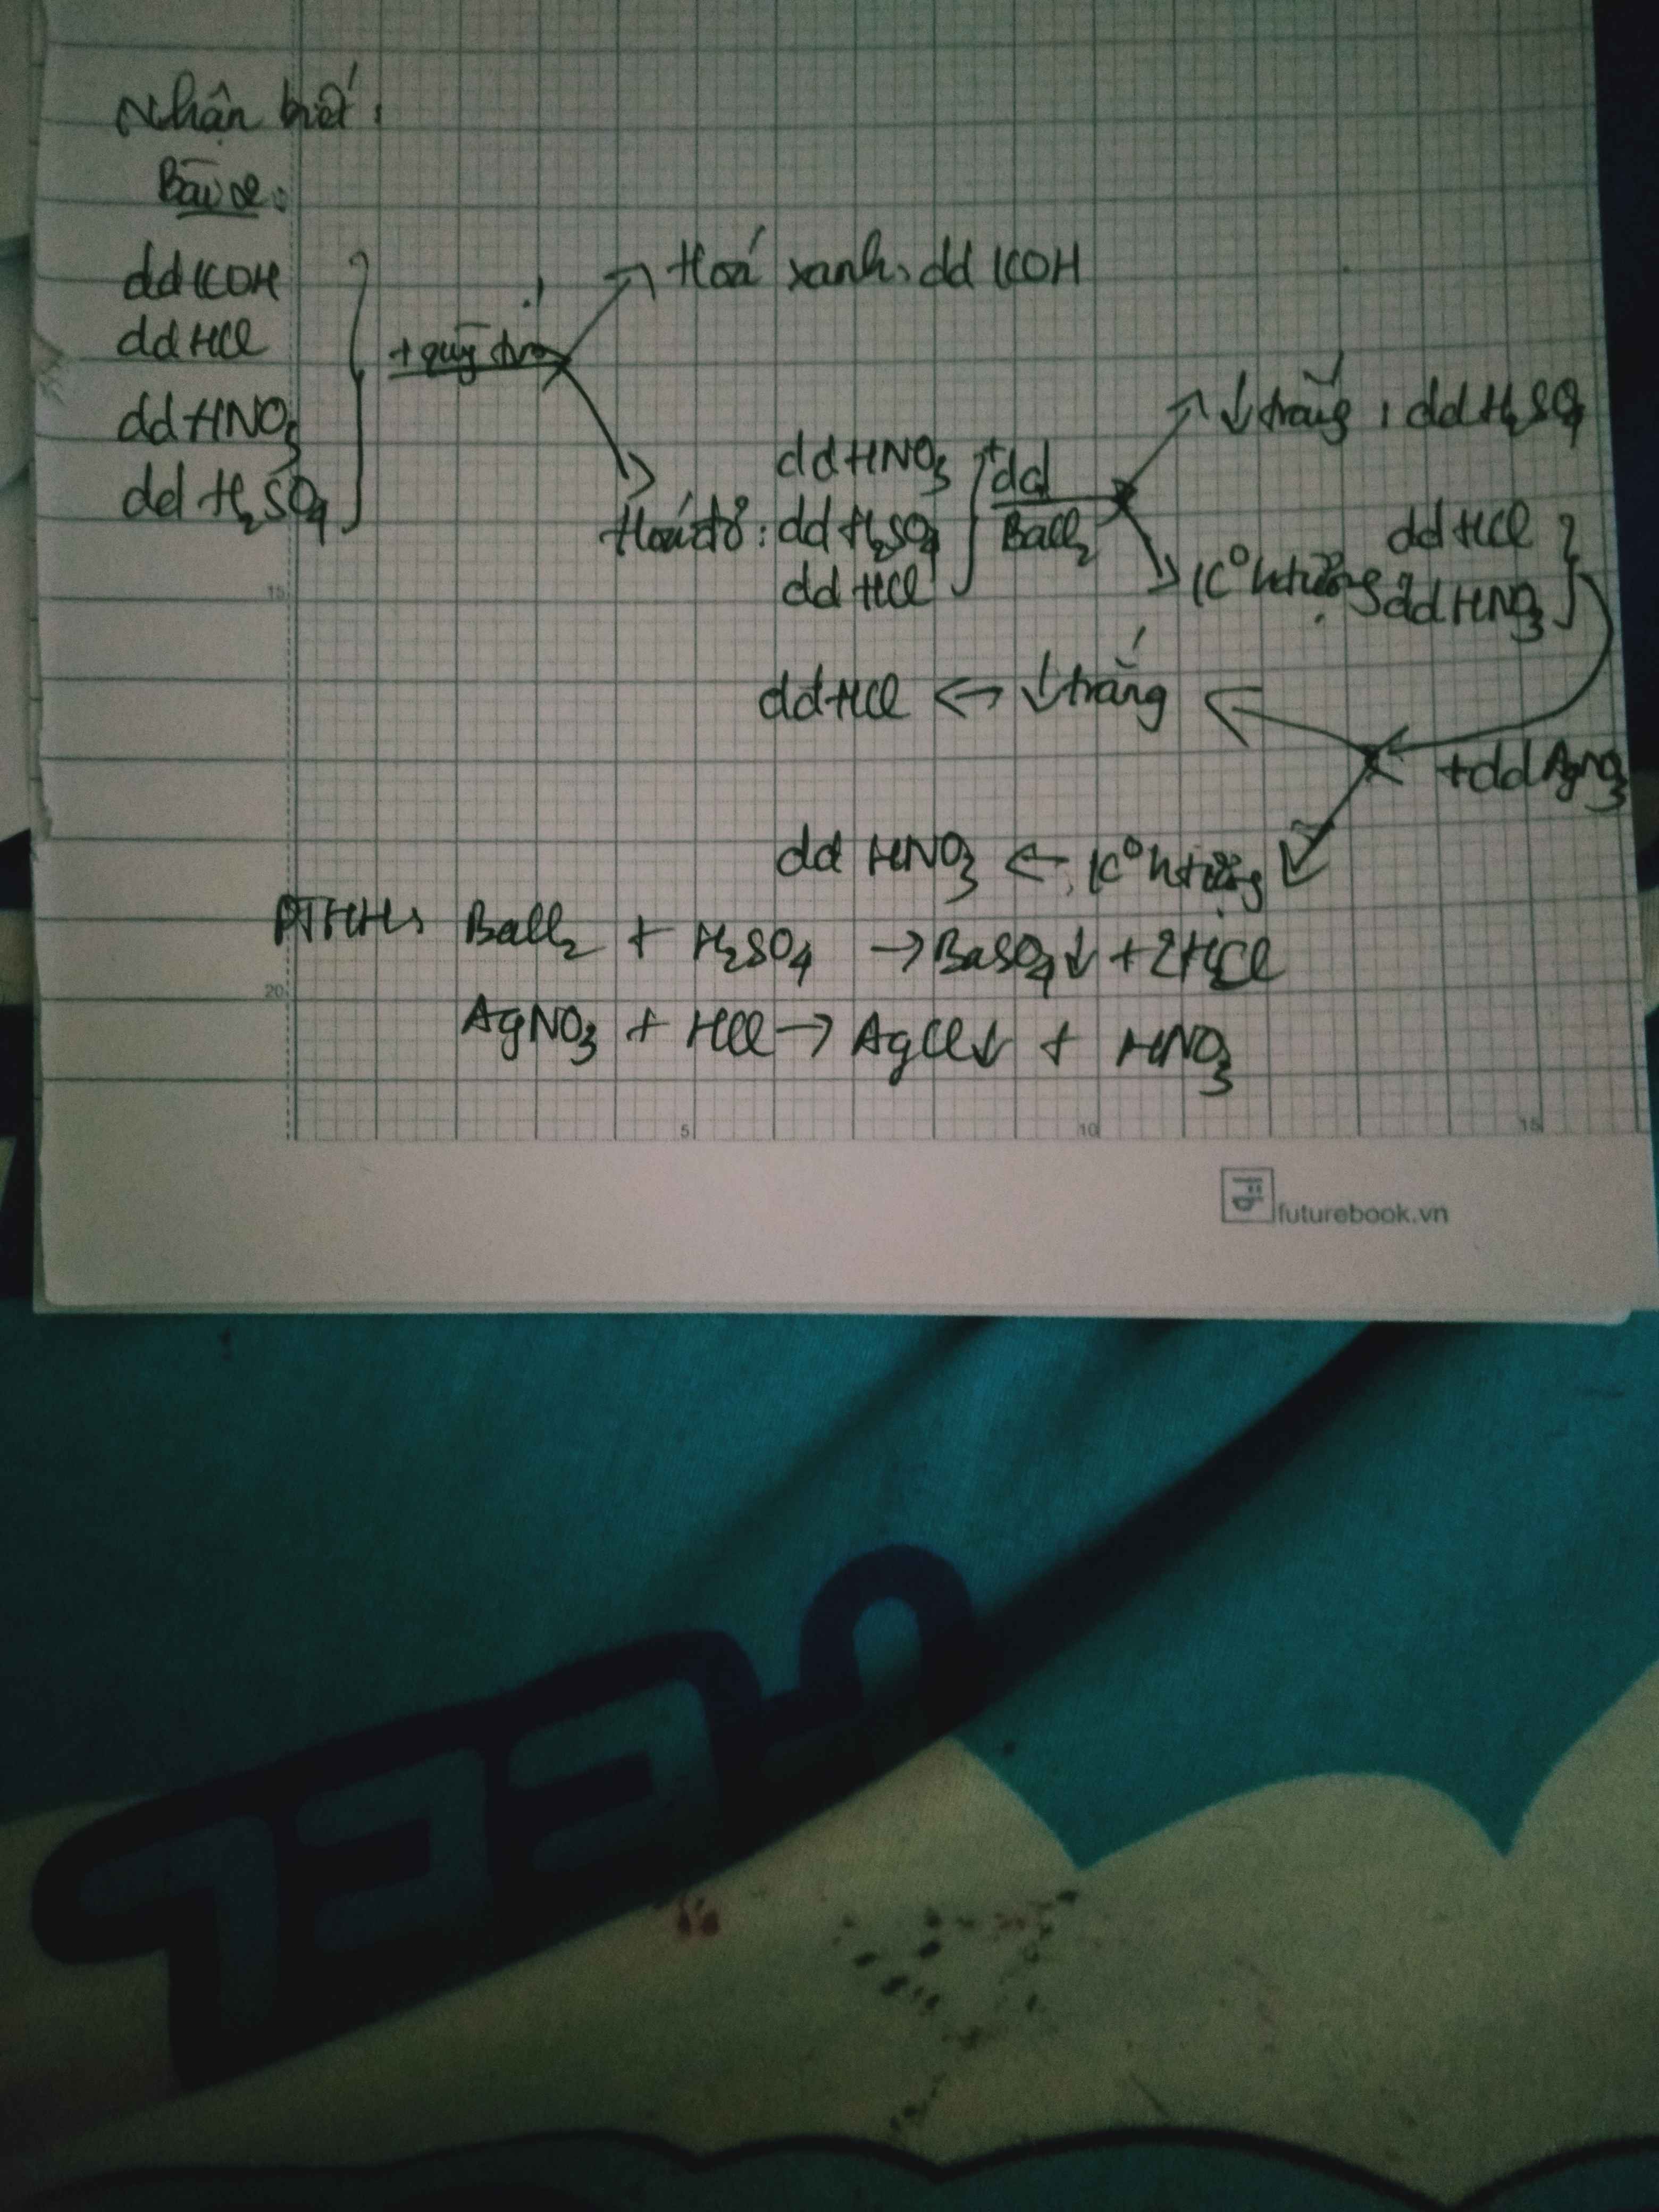 Nhận biết:
Bài 2:
dd KOH
dd HCl
dd HNO3
dd H2SO4
+ quỳ tím
Hoá xanh: dd KOH
Hoá đỏ: dd HNO3
dd H2SO4
dd HCl
+ dd BaCl2
↓ trắng: dd H2SO4
K° h.tượng dd HCl
dd HNO3
+ dd AgNO3
dd HCl ← ↓ trắng
dd HNO3 ← K° h.tượng
PTHH: BaCl2 + H2SO4 → BaSO4↓ + 2HCl
AgNO3 + HCl → AgCl↓ + HNO3
15
20
5
10
15
futurebook.vn